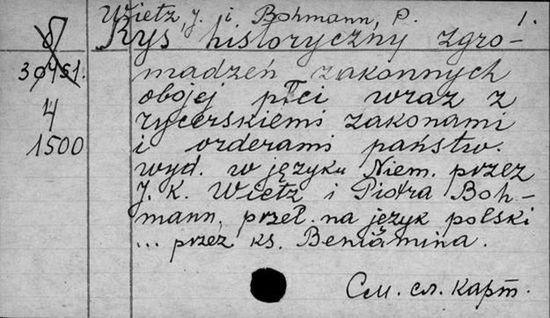 Wietz, J. i Bohmann, P. 1.
8
Rys historyczny zgro-
30451.
madzeń zakonnych
obojej płci wraz z
4
rycerskiemi zakonami
1500
i orderami państw.
wyd. w języku Niem. przez
J. K. Wietz i Piotra Boh-
mann, przeł. na język polski
... przez ks. Beniamina.
См. сл. карт.